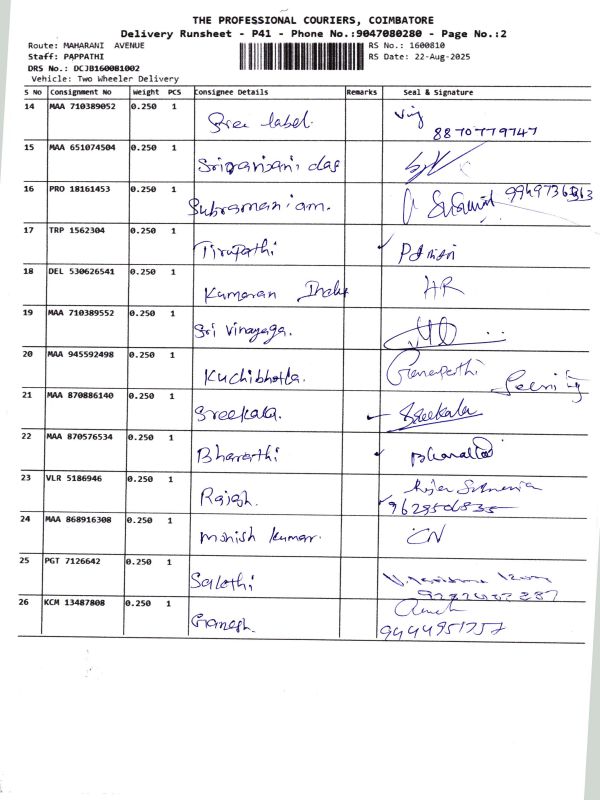 THE PROFESSIONAL COURIERS, COIMBATORE
Delivery Runsheet - P41 - Phone No.:9047080280 - Page No.:2
Route: MAHARANI AVENUE RS No.: 1600810
Staff: PAPPATHI RS Date: 22-Aug-2025
DRS No.: DCJB160081002
Vehicle: Two Wheeler Delivery
S No Consignment No Weight PCS Consignee Details Remarks Seal & Signature
14 MAA 710389052 0.250 1 Sree label.
8870779747
15 MAA 651074504 0.250 1 Sriranjani das
16 PRO 18161453 0.250 1 Subramaniam.
17 TRP 1562304 0.250 1 Tirupathi
18 DEL 530626541 0.250 1 Kumaran HR
19 MAA 710389552 0.250 1 Sri Vinayaga.
20 MAA 945592498 0.250 1 Kuchibhotla. Ganapathi
21 MAA 870886140 0.250 1 Sreekala. Sreekala
22 MAA 870576534 0.250 1 Bharathi
23 VLR 5186946 0.250 1 Rajesh.
9629506835
24 MAA 868916308 0.250 1 Monish kumar. CN
25 PGT 7126642 0.250 1
26 KCM 13487808 0.250 1 Ganesh.
9444951757